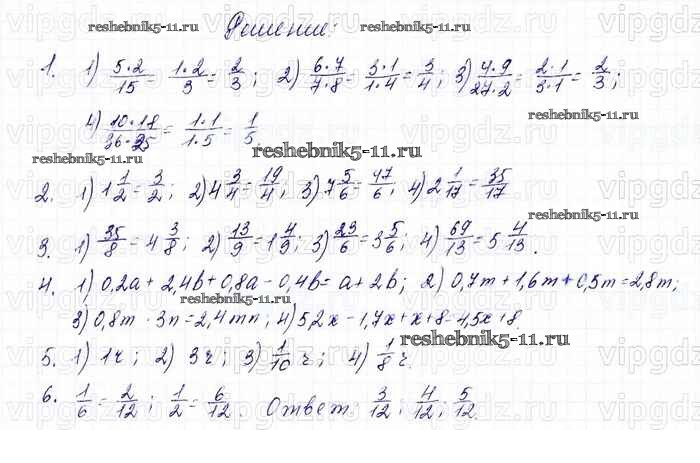 reshebnik5-11.ru Решение: reshebnik5-11.ru
1. 1) 5·2/15 = 1·2/3 = 2/3; 2) 6·7/7·8 = 3·1/1·4 = 3/4; 3) 4·9/27·2 = 2·1/3·1 = 2/3;
reshebnik5-11.ru
4) 10·18/36·25 = 1·1/1·5 = 1/5
reshebnik5-11.ru reshebnik5-11.ru
2. 1) 1 1/2 = 3/2; 2) 4 3/4 = 19/4; 3) 7 5/6 = 47/6; 4) 2 1/17 = 35/17
reshebnik5-11.ru
3. 1) 35/8 = 4 3/8; 2) 13/9 = 1 4/9; 3) 23/6 = 3 5/6; 4) 69/13 = 5 4/13.
4. 1) 0,2a + 2,4b + 0,8a - 0,4b = a + 2b; 2) 0,7m + 1,6m + 0,5m = 2,8m;
reshebnik5-11.ru
3) 0,8m · 3n = 2,4mn; 4) 5,2x - 1,7x + x + 8 = 4,5x + 8
reshebnik5-11.ru
5. 1) 1ч; 2) 3ч; 3) 1/10 ч; 4) 1/8 ч.
6. 1/6 = 2/12; 1/2 = 6/12. Ответ: 3/12; 4/12; 5/12.
vipgdz.ru